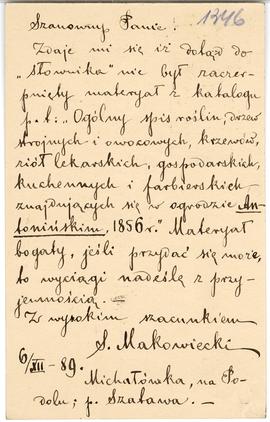 1346
Szanowny Panie!
Zdaje mi się iż dotąd do
„słownika" nie był zaczer-
pnięty materyał z katalogu
p. t.: „Ogólny spis roślin, drzew
strojnych i owocowych, krzewów,
ziół lékarskich, gospodarskich,
kuchennych i farbierskich
znajdujących się w ogrodzie An-
tonińskim, 1856 r." Materyał
bogaty, jeśli przydać się może,
to wyciągi nadeślę z przy-
jemnością. —
Z wysokim szacunkiem
S. Makowiecki
6/XII - 89.
Michałówka, na Po-
dolu; p. Szatawa. —